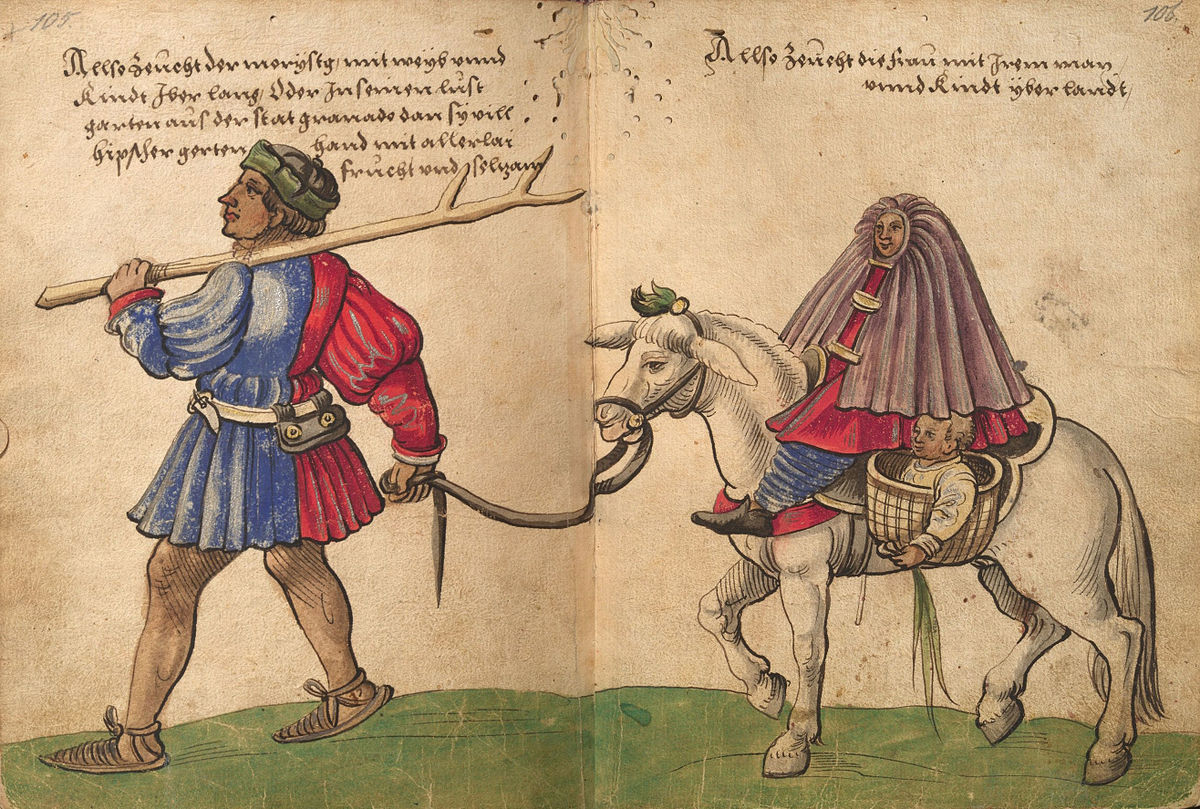 105.
Allso zeücht der morystg, mit weyb vnnd
Kindt Iber lang, Oder In seinen lust
garten aüs der stat granado dan sÿ vill
hipscher gerten hand mit allerlai
frücht vnd selzam
106.
Allso zeücht die fraü mit Irem man
vnnd Kindt ÿber landt,